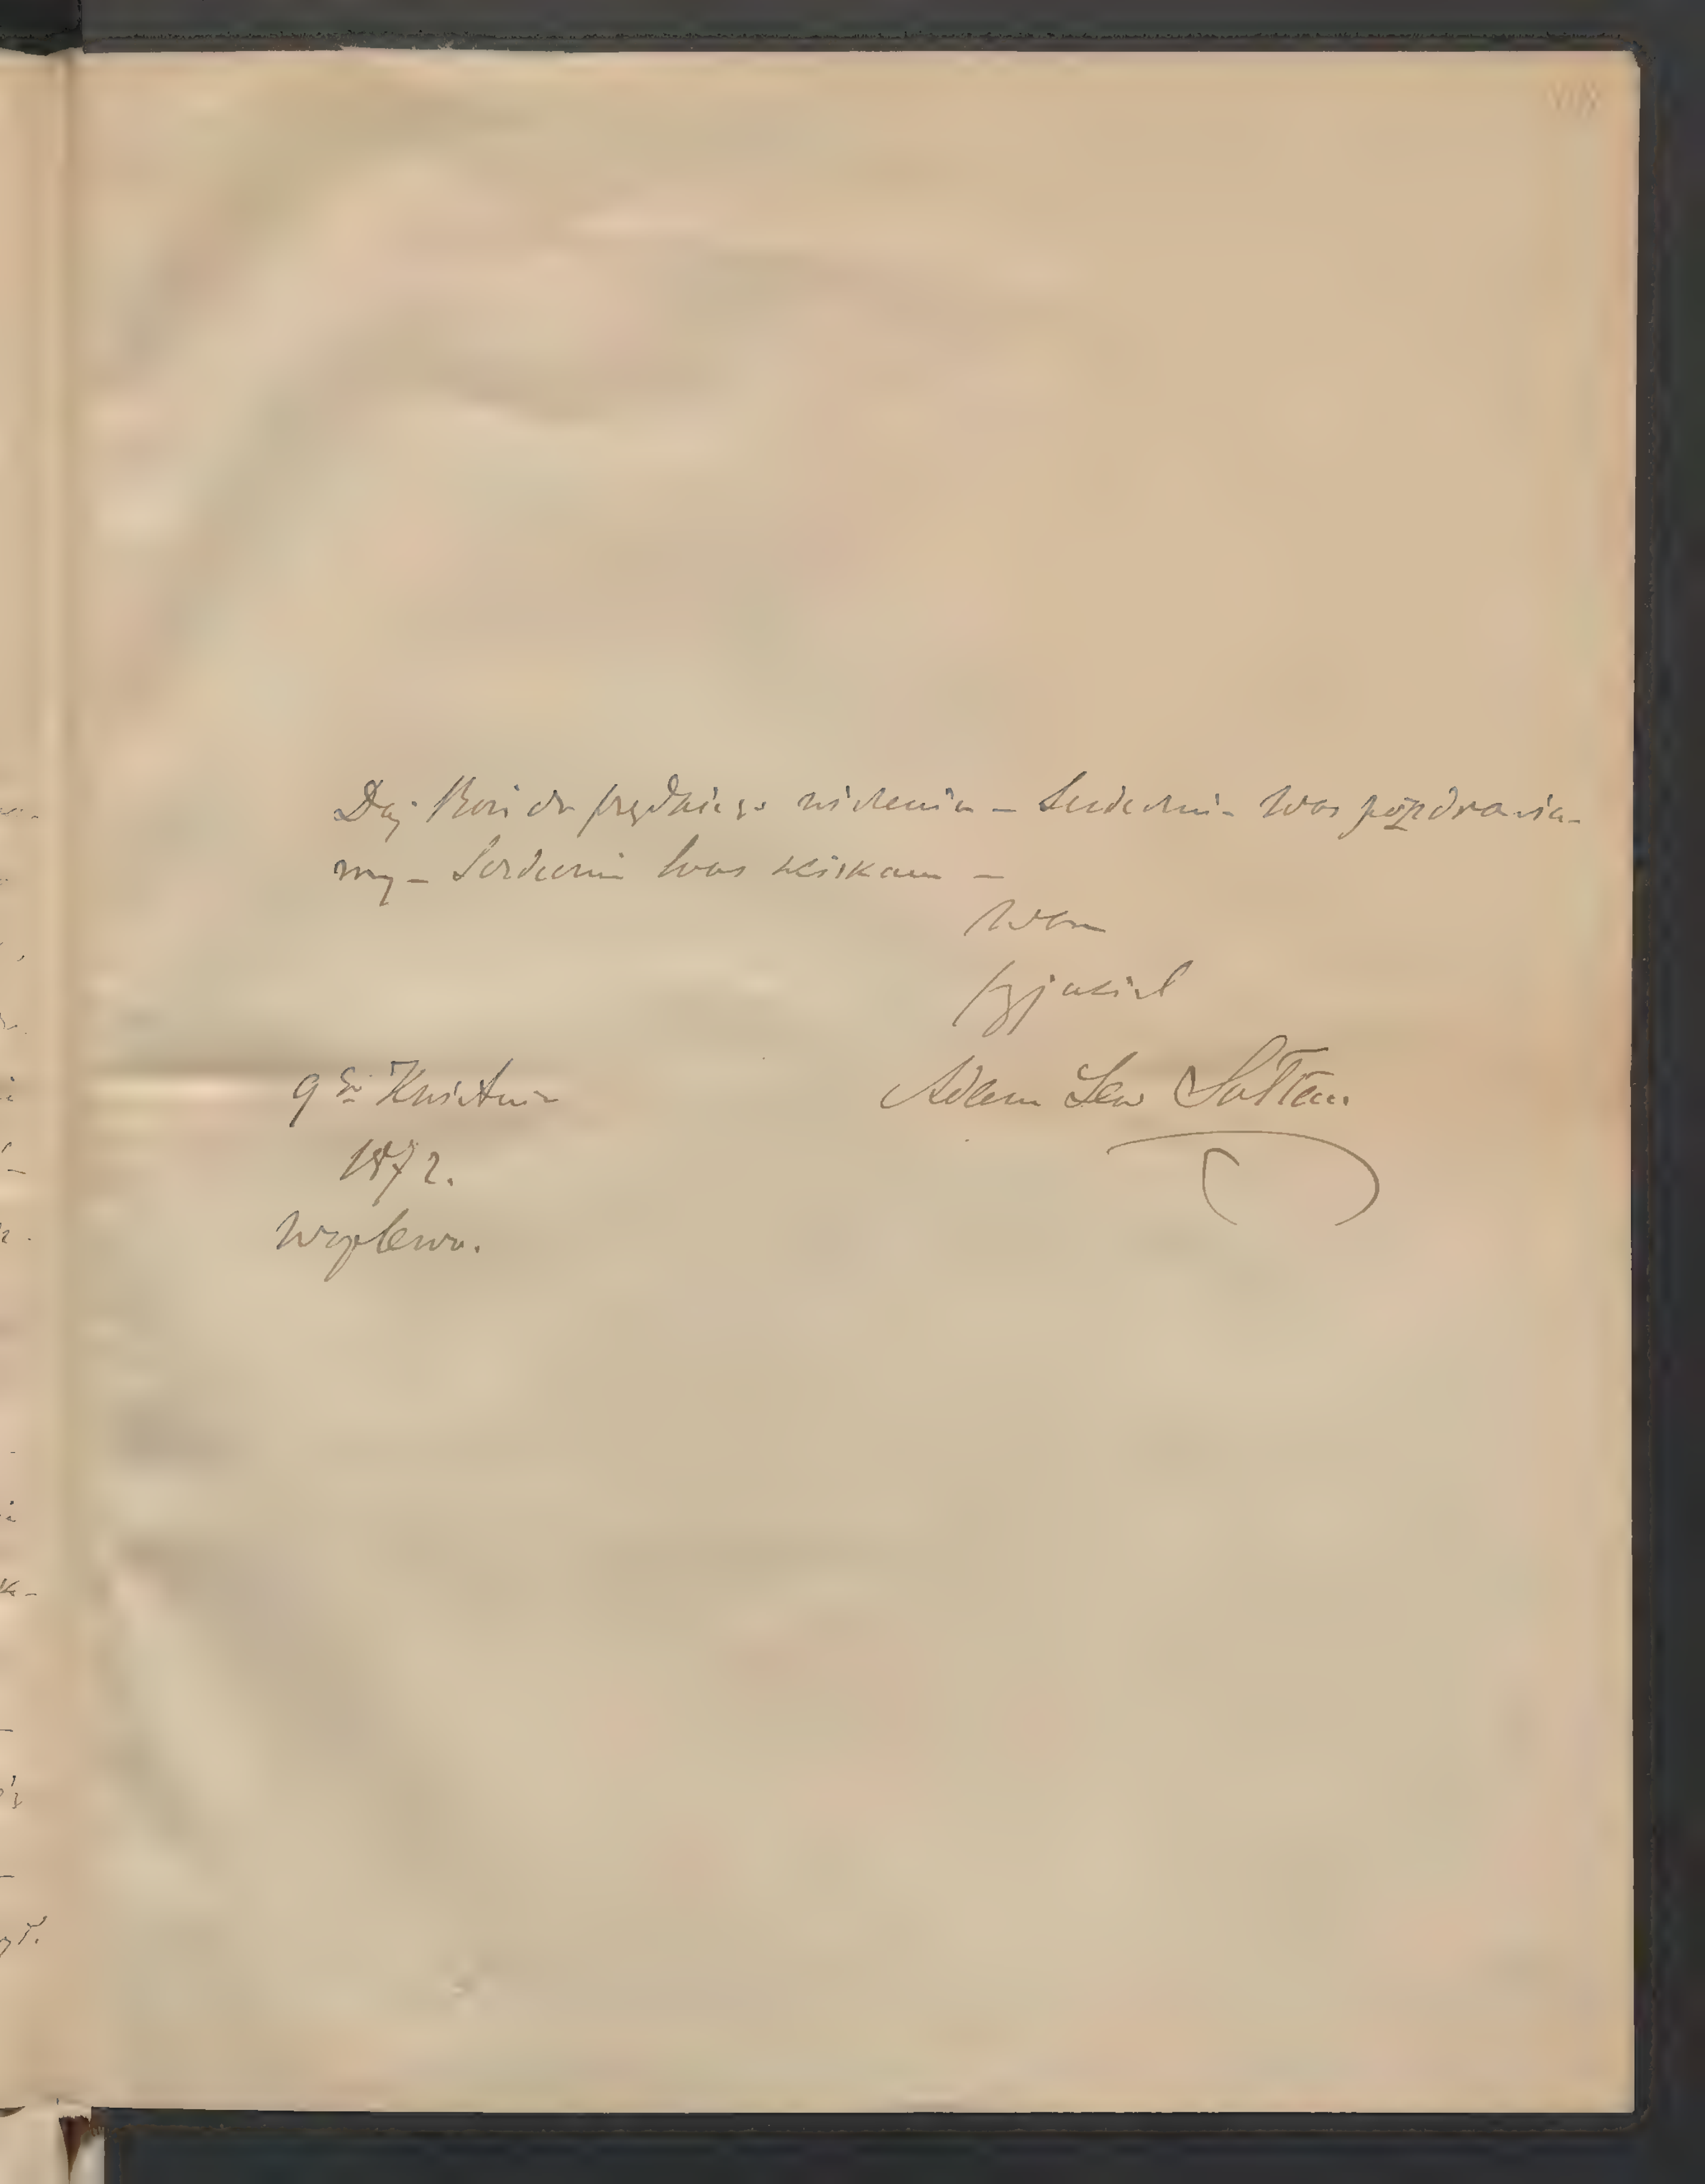 Daj Boże do prędkiego widzenia – Serdecznie Was pozdrawia-
my – Serdecznie Was ściskam –
Wam
przyjaciel
Adam Lew Sołtan
9go Kwietnia
1872.
Waplewo.